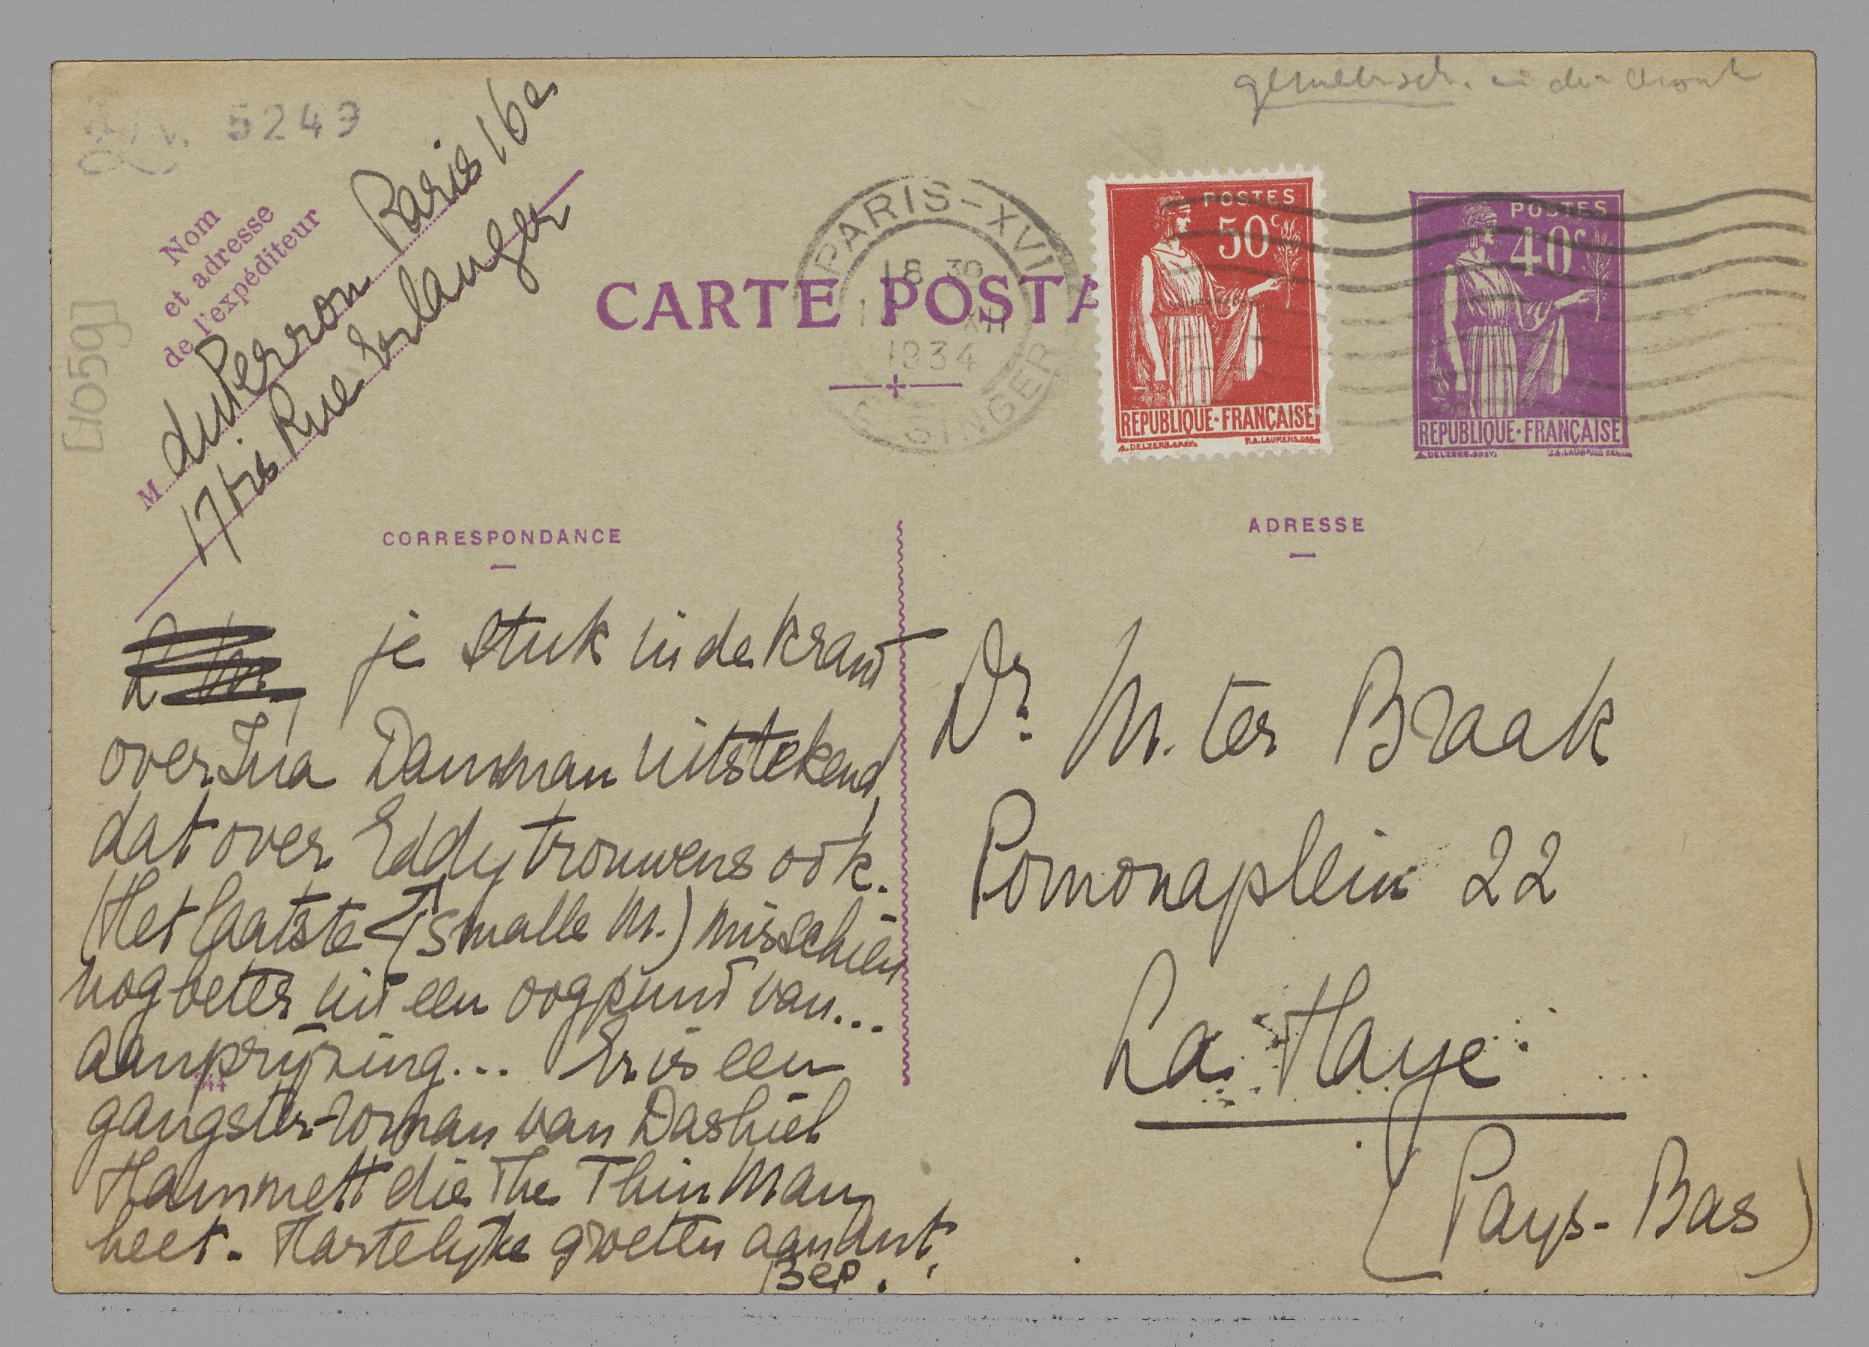 5249
[1059]
Nom
et adresse
de l'expéditeur
M du Perron Paris 16e
17bis Rue Erlanger
CARTE POSTA
PARIS-XVI
18 30
XII
1934
SINGER
POSTES
50c
REPUBLIQUE·FRANÇAISE
POSTES
40c
REPUBLIQUE·FRANÇAISE
CORRESPONDANCE
je stuk in de krant
over Ina Damman uitstekend,
dat over Eddy trouwens ook.
(Het laatste (smalle M.) misschien
nog beter uit een oogpunt van...
aanprijzing... Er is een
gangster-roman van Dashiel
Hammett die The Thin Man
heet. Hartelijke groeten aan Ant.
Bep.
ADRESSE
Dr. M. ter Braak
Pomonaplein 22
La Haye
(Pays-Bas)